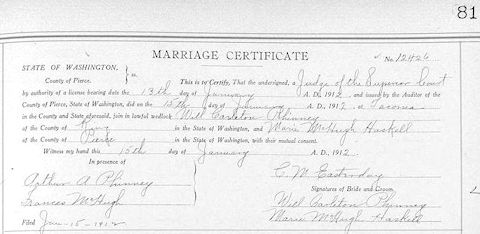 81
MARRIAGE CERTIFICATE
No. 12426
STATE OF WASHINGTON,
County of Pierce. } ss
This is to Certify, That the undersigned, a Judge of the Superior Court
by authority of a license bearing date the 13th day of January A. D., 1912, and issued by the Auditor of the
County of Pierce, State of Washington, did on the 15th day of January A. D., 1912, at Tacoma
in the County and State aforesaid, join in lawful wedlock Will Carlton Phinney
of the County of King in the State of Washington, and Marie McHugh Haskell
of the County of Pierce in the State of Washington, with their mutual consent.
Witness my hand this 15th day of January A. D., 1912
In presence of
Arthur A Phinney
Frances McHugh
C. M. Easterday
Signatures of Bride and Groom
Will Carlton Phinney
Marie McHugh Haskell
Filed Jan-15-1912